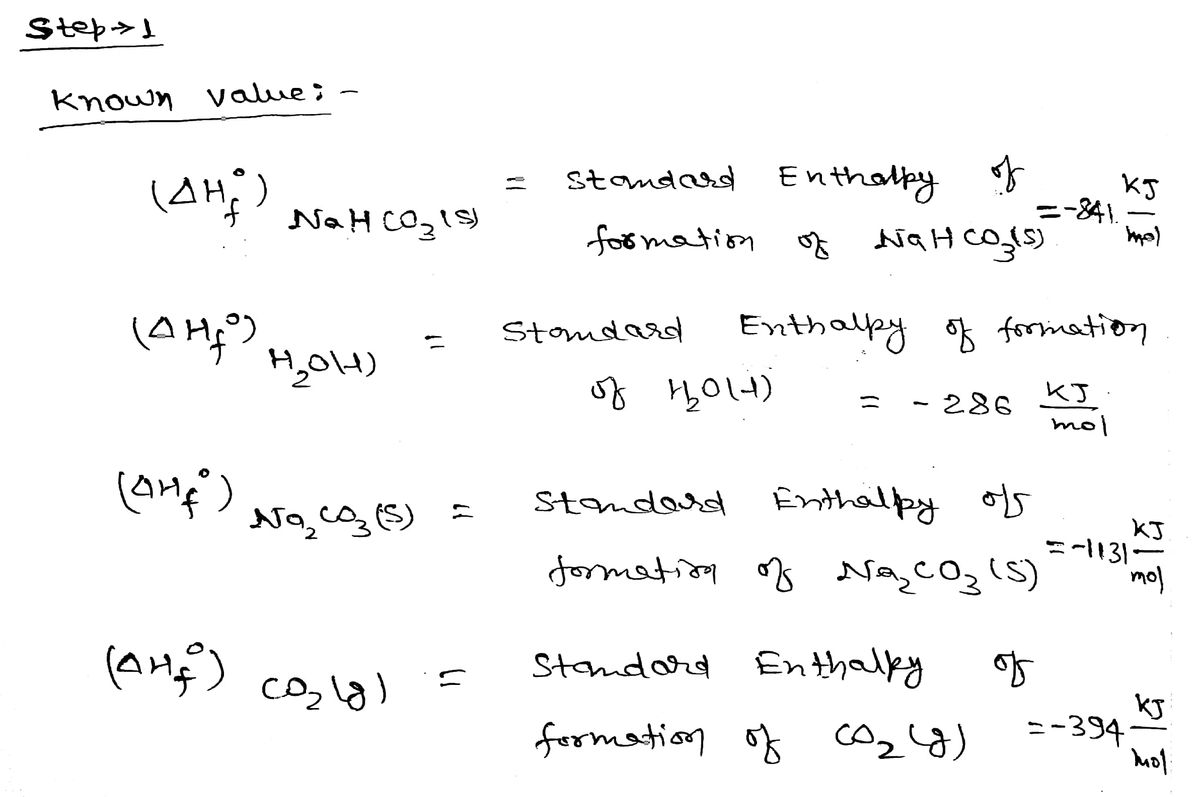 Step→1
Known value:-
(ΔH°f) NaHCO₃(s) = Standard Enthalpy of
formation of NaHCO₃(s) = -841. KJ/mol
(ΔHf°) H₂O(l) = Standard Enthalpy of formation
of H₂O(l) = -286 KJ/mol
(ΔHf°) Na₂CO₃(S) = Standard Enthalpy of
formation of Na₂CO₃(S) = -1131 KJ/mol
(ΔHf°) CO₂(g) = Standard Enthalpy of
formation of CO₂(g) = -394 KJ/mol